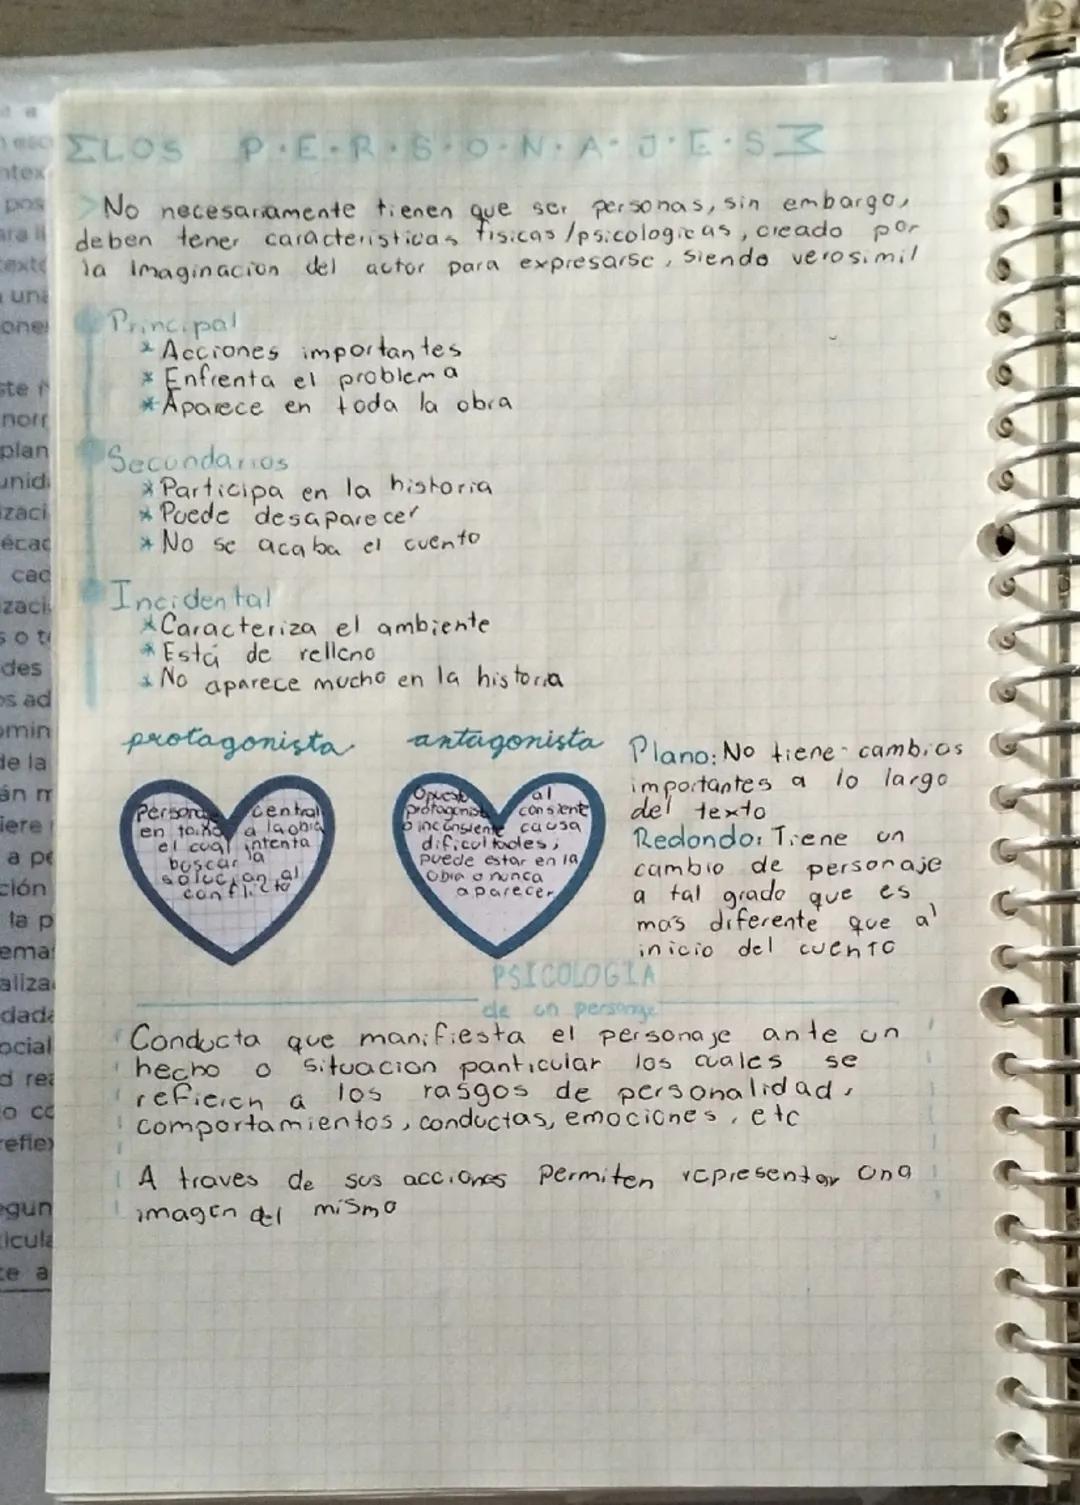 LOS P·E·R·S·O·N·A·J·E·S
No necesariamente tienen que ser personas, sin embargo,
deben tener caracteristicas fisicas/psicologicas, creado por
la Imaginacion del actor para expresarse, siendo verosimil
Principal
* Acciones importantes
* Enfrenta el problema
* Aparece en toda la obra
Secundarios
* Participa en la historia
* Puede desaparecer
* No se acaba el cuento
Incidental
* Caracteriza el ambiente
* Está de relleno
* No aparece mucho en la historia
protagonista
Personaje central
en torno a la obra
el cual intenta
buscar la
solucion al
conflicto
antagonista
Opuesto al
protagonista consiente
o inconsiente causa
dificultades,
puede estar en la
obra o nunca
aparecer
Plano: No tiene cambios
importantes a lo largo
del texto
Redondo: Tiene un
cambio de personaje
a tal grado que es
mas diferente que al
inicio del cuento
PSICOLOGIA
de un personaje
Conducta que manifiesta el personaje ante un
hecho o situacion panticular los cuales se
refieren a los rasgos de personalidad,
comportamientos, conductas, emociones, etc
A traves de sus acciones permiten representar una
imagen del mismo